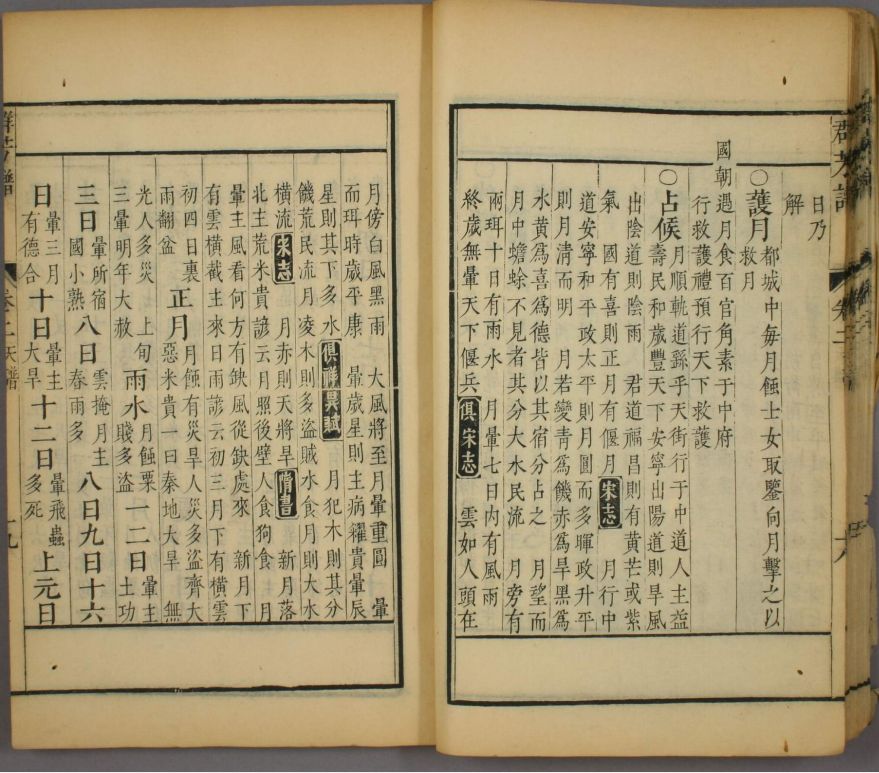 群芳譜
日乃
解
○護月 都城中每月蝕士女取鑒向月擊之以
救月
國朝遇月食百官角素于中府
行救護禮預行天下救護
○占候 月順軌道繇乎天街行于中道人主益
壽民和歲豐天下安寧出陽道則旱風
出陰道則陰雨　君道福昌則有黄芒或紫
氣　國有喜則正月有偃月 宋志 月行中
道安寧和平政太平則月圓而多暉政升平
則月清而明　月若變青爲饑赤爲旱黑爲
水黃爲喜爲德皆以其宿分占之　月望而
月中蟾蜍不見者其分大水民流　月旁有
兩珥十日有雨水　月暈七日内有風雨
終歲無暈天下偃兵 俱宋志 雲如人頭在
月傍白風黑雨　大風將至月暈重圓　暈
而珥時歲平康　暈歲星則主病糴貴暈辰
星則其下多水 俱祥異賦 月犯木則其分
饑荒民流月凌木則多盜賊水食月則大水
橫流 宋志 月赤則天將旱 隋書 新月落
北主荒米貴諺云月照後壁人食狗食　月
暈主風看何方有缺風從缺處來　新月下
有雲橫截主來日雨諺云初三月下有橫雲
初四日裏
雨翻盆
正月
月蝕有災旱人災多盜齊大
惡米貴一曰秦地大旱　無
光人多災　上旬
三暈明年大赦
雨水
月蝕粟
賤多盜
一二日
暈主
土功
三日
暈所宿
國小熟
八日
雲掩月主
春雨多
八日九日十六
日
暈三月
有德合
十日
暈主
大旱
十二日
暈飛蟲
多死
上元日
群芳譜
卷二 天譜
十九